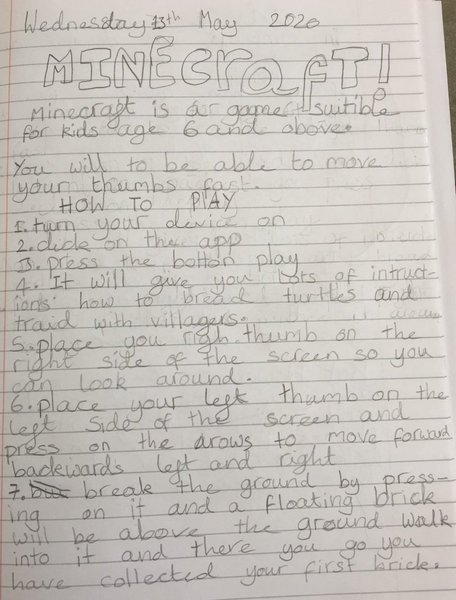 Wednessday 13th May 2020
MINECrafT!
Minecraft is a game suitible
for kids age 6 and above.
You will to be able to move
your thumbs fast.
HOW TO PLAY
1. turn your device on
2. click on the app
3. press the botton play
4. It will give you lots of intruct-
ions how to bread turtles and
traid with villagers.
5. place you righ thumb on the
right side of the screen so you
can look around.
6. place your left thumb on the
left side of the screen and
press on the arows to move forward
backewards left and right
7. break the ground by press-
ing on it and a floating brick
will be above the ground walk
into it and there you go you
have collected your first brick.